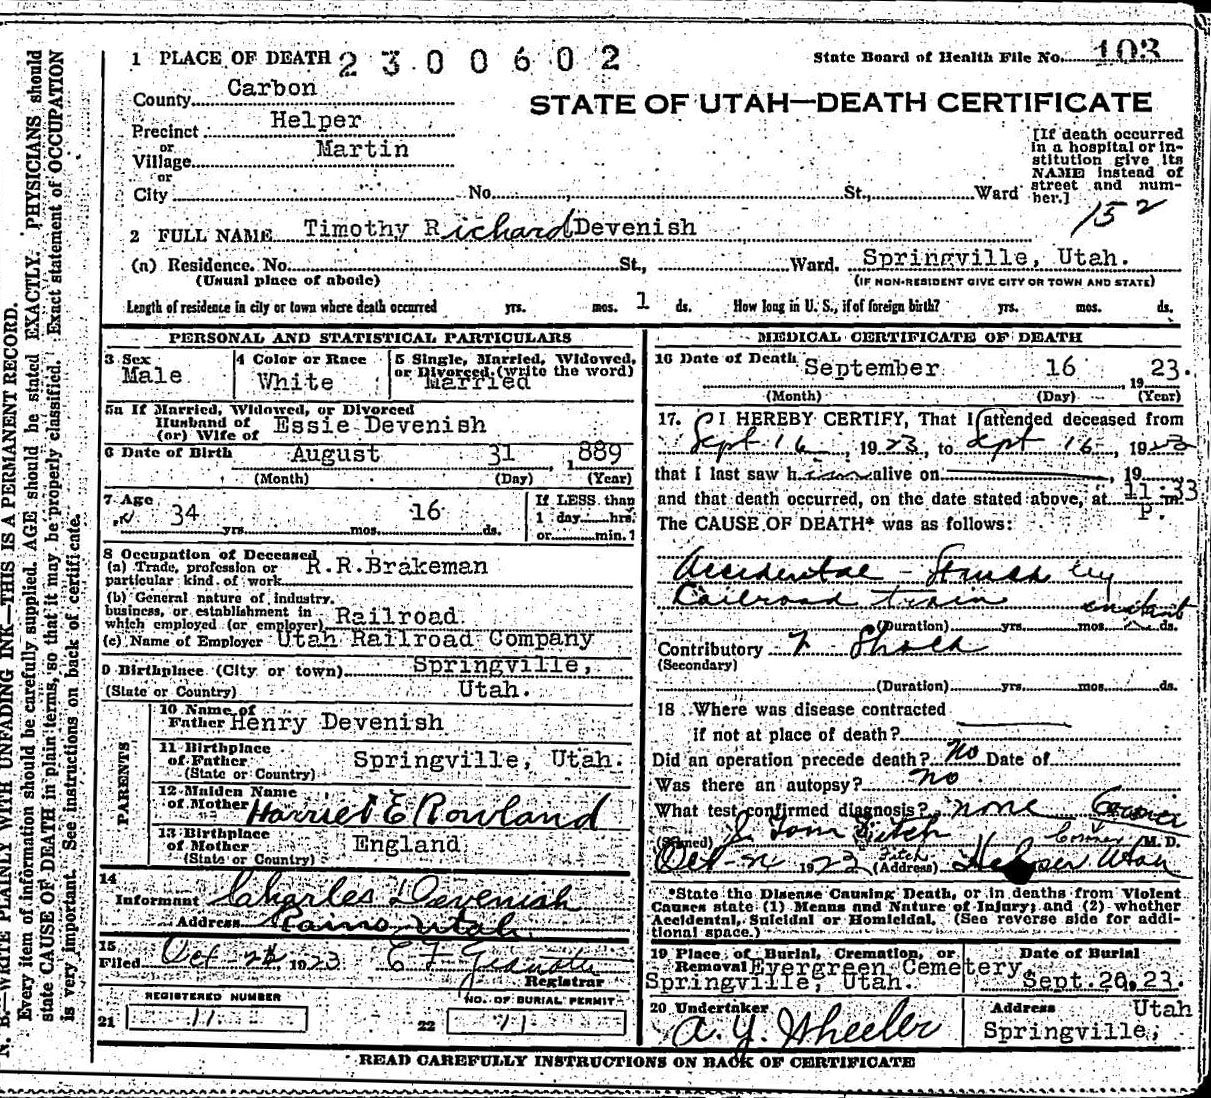 1 PLACE OF DEATH 2300602
State Board of Health File No. 103
County Carbon
STATE OF UTAH—DEATH CERTIFICATE
Precinct Helper
or
Village Martin
or
City No. St., Ward
[If death occurred
in a hospital or in-
stitution give its
NAME instead of
street and num-
ber.]
152
2 FULL NAME Timothy Richard Devenish
(a) Residence. No. St., Ward. Springville, Utah.
(Usual place of abode) (IF NON-RESIDENT GIVE CITY OR TOWN AND STATE)
Length of residence in city or town where death occurred yrs. mos. 1 ds. How long in U. S., if of foreign birth? yrs. mos. ds.
PERSONAL AND STATISTICAL PARTICULARS
3 Sex
Male
4 Color or Race
White
5 Single, Married, Widowed,
or Divorced (write the word)
Married
5a If Married, Widowed, or Divorced
Husband of
(or) Wife of Essie Devenish
6 Date of Birth August 31, 1889
(Month) (Day) (Year)
7 Age
34 yrs. mos. 16 ds.
If LESS than
1 day hrs.
or min.?
8 Occupation of Deceased
(a) Trade, profession or
particular kind of work R.R.Brakeman
(b) General nature of industry,
business, or establishment in
which employed (or employer) Railroad
(c) Name of Employer Utah Railroad Company
9 Birthplace (City or town) Springville,
(State or Country) Utah.
PARENTS
10 Name of
Father Henry Devenish
11 Birthplace
of Father Springville, Utah.
(State or Country)
12 Maiden Name
of Mother Harriet E Rowland
13 Birthplace
of Mother England
(State or Country)
14
Informant Charles Devenish
Address Rains, Utah.
15
Filed Oct 1923
Registrar
REGISTERED NUMBER
21 11
NO. OF BURIAL PERMIT
22 11
MEDICAL CERTIFICATE OF DEATH
16 Date of Death September 16, 1923.
(Month) (Day) (Year)
17. I HEREBY CERTIFY, That I attended deceased from
Sept 16, 1923, to Sept 16, 1923
that I last saw him alive on , 19
and that death occurred, on the date stated above, at 11:33 P. m.
The CAUSE OF DEATH* was as follows:
Accidental - Struck by
Railroad train instant
(Duration) yrs. mos. ds.
Contributory Shock
(Secondary)
(Duration) yrs. mos. ds.
18 Where was disease contracted
if not at place of death?
Did an operation precede death? No Date of
Was there an autopsy? no
What test confirmed diagnosis? none
(Signed) J Tom Fitch M. D.
Oct 1923 Fitch (Address) Helper Utah
*State the Disease Causing Death, or in deaths from Violent
Causes state (1) Means and Nature of Injury; and (2) whether
Accidental, Suicidal or Homicidal. (See reverse side for addi-
tional space.)
19 Place of Burial, Cremation, or
Removal Evergreen Cemetery,
Springville, Utah.
Date of Burial
Sept. 20, 23.
20 Undertaker
A. Y. Wheeler
Address Utah
Springville,
READ CAREFULLY INSTRUCTIONS ON BACK OF CERTIFICATE
N. B.—WRITE PLAINLY WITH UNFADING INK—THIS IS A PERMANENT RECORD.
Every item of information should be carefully supplied. AGE should be stated EXACTLY. PHYSICIANS should
state CAUSE OF DEATH in plain terms, so that it may be properly classified. Exact statement of OCCUPATION
is very important. See instructions on back of certificate.